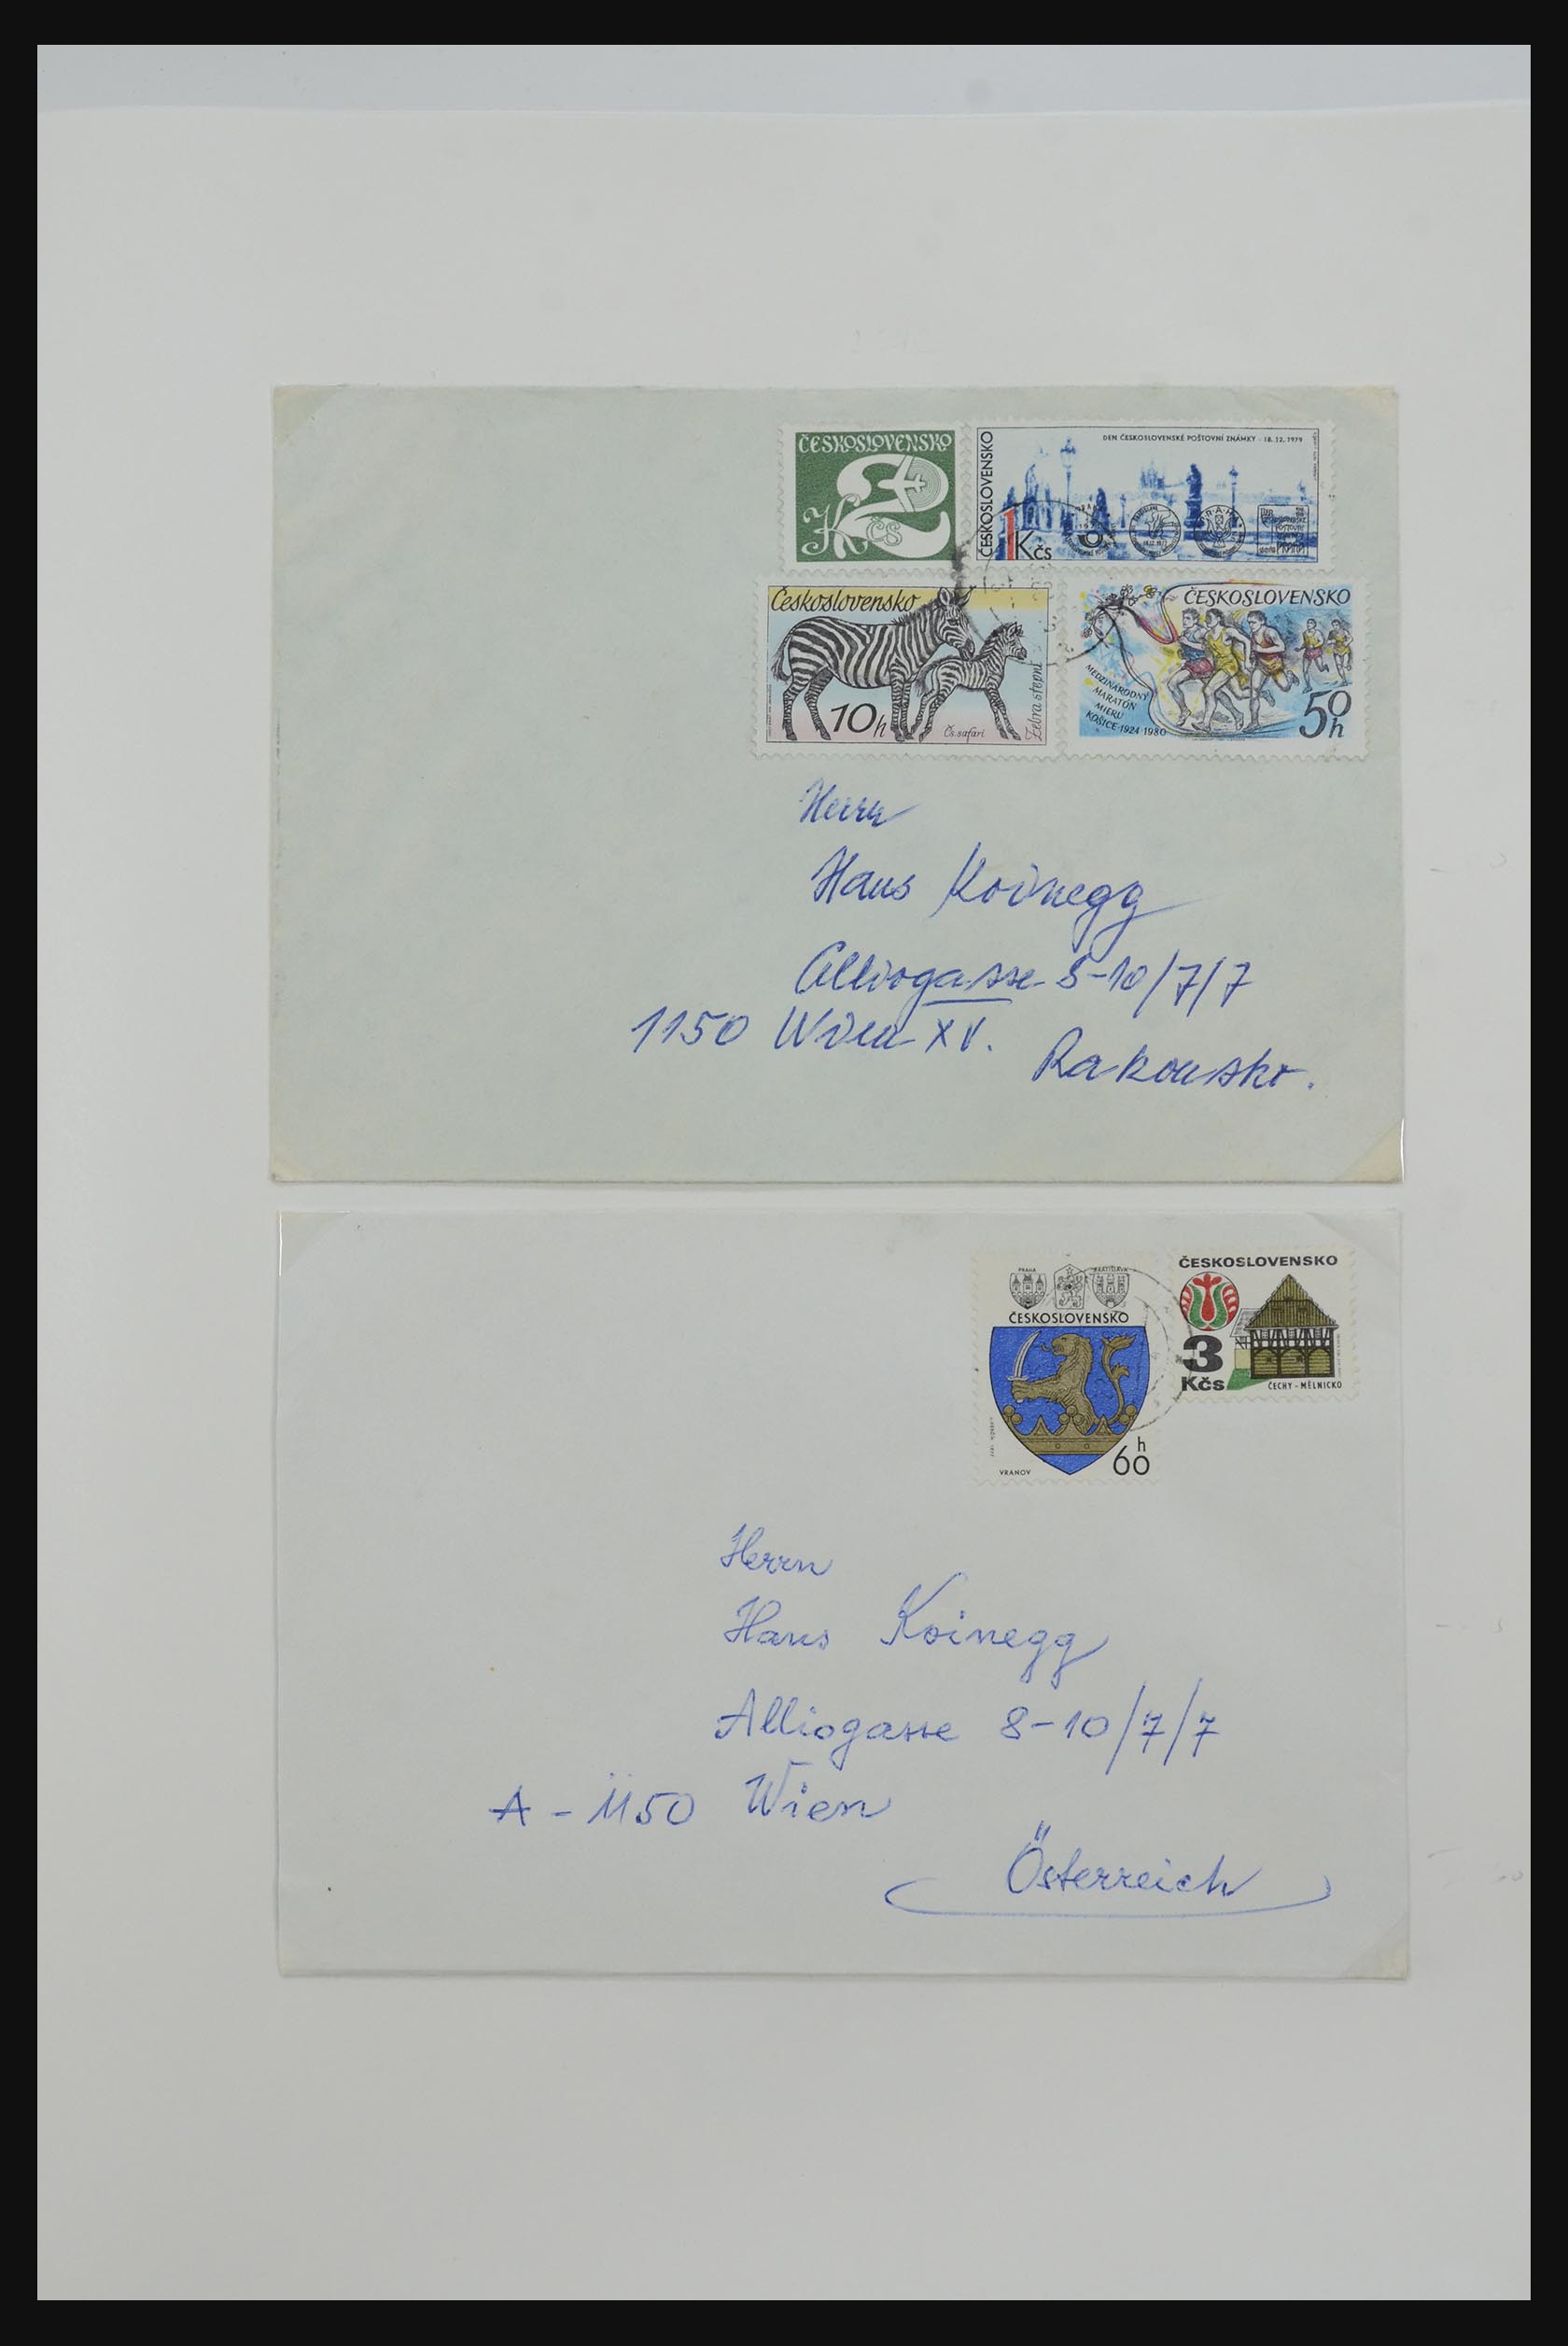 ČESKOSLOVENSKO
2
Kčs
ČESKOSLOVENSKO
DEN ČESKOSLOVENSKÉ POŠTOVNÍ ZNÁMKY - 18.12.1979
1Kčs
Československo
10h
Čs. safari
Zebra stepní
ČESKOSLOVENSKO
MEDZINÁRODNÝ
MARATÓN
MIERU
KOŠICE·1924·1980
50h
Herrn
Hans Koinegg
Alliogasse 8-10/7/7
1150 Wien XV.
Rakousko.
PRAHA
BRATISLAVA
ČESKOSLOVENSKO
VRANOV
60h
ČESKOSLOVENSKO
3
Kčs
ČECHY - MĚLNICKO
Herrn
Hans Koinegg
Alliogasse 8-10/7/7
A - 1150 Wien
Österreich